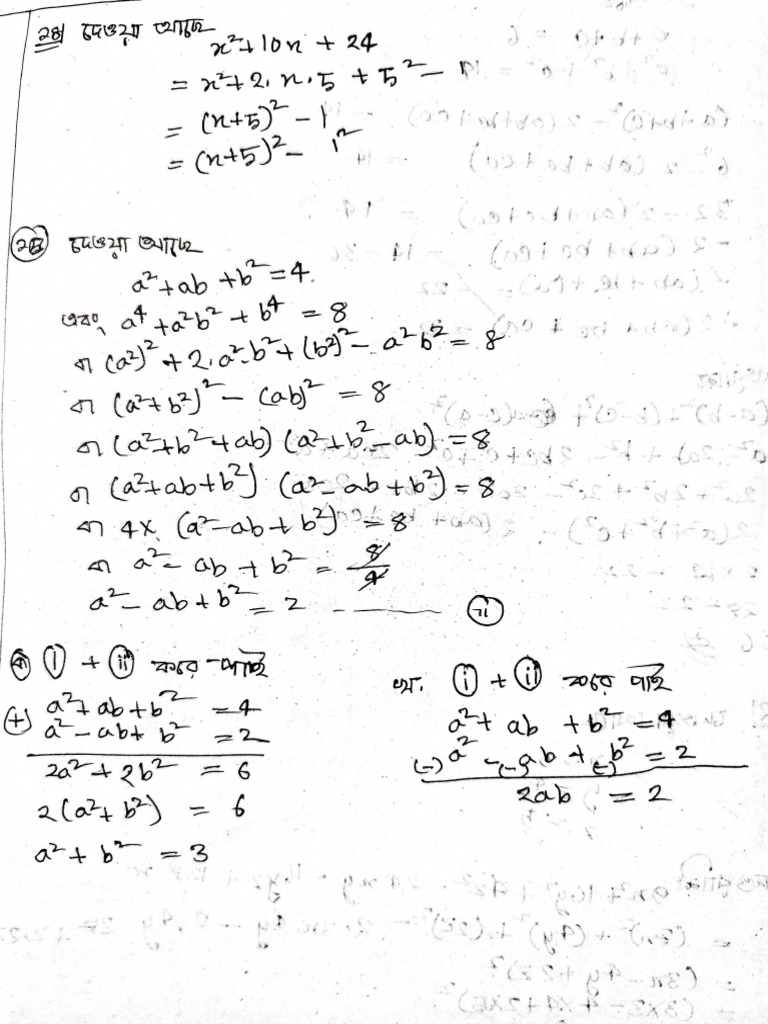 ২৪| দেওয়া আছে
x²+10x + 24
= x²+2.x.5 + 5² - 1
= (x+5)² - 1
= (x+5)² - 1²
২৫ দেওয়া আছে
a²+ab+b²=4.
এবং, a⁴+a²b²+b⁴ = 8
বা (a²)²+2.a².b²+(b²)²- a²b²= 8
বা (a²+b²)² - (ab)² = 8
বা (a²+b²+ab) (a²+b²-ab) = 8
বা (a²+ab+b²) (a²-ab+b²) = 8
বা 4× (a²-ab+b²) = 8
বা a²- ab + b² = 8/4
a²- ab+b² = 2 ——— (ii)
ক (i) + (ii) করে পাই
(+) a²+ab+b² = 4
a²-ab+b² = 2
2a²+2b² = 6
2(a²+b²) = 6
a²+b² = 3
খ. (i) + (ii) করে পাই
a²+ ab + b² = 4
(-) a² -(-) ab + (-) b² = 2
2ab = 2